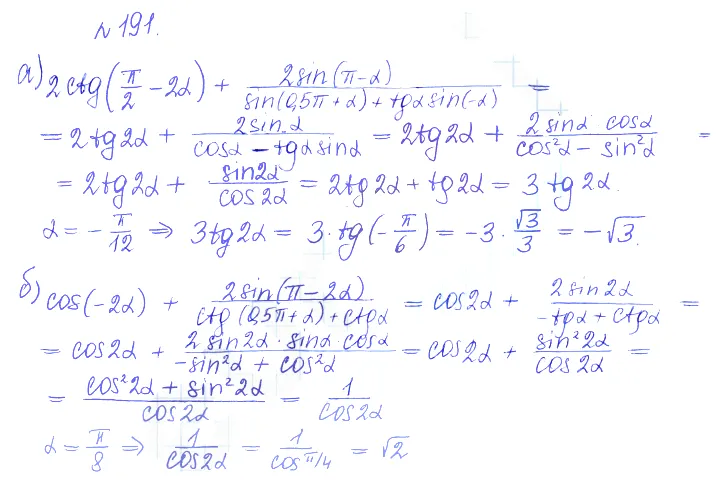 № 191.
а) 2ctg(π/2 − 2α) + 2sin(π−α)/(sin(0,5π+α)+tgα sin(−α)) =
= 2tg2α + 2sinα/(cosα − tgα sinα) = 2tg2α + 2sinα cosα/(cos²α − sin²α) =
= 2tg2α + sin2α/cos2α = 2tg2α + tg2α = 3tg2α.
α = −π/12 ⇒ 3tg2α = 3·tg(−π/6) = −3·√3/3 = −√3.
б) cos(−2α) + 2sin(π−2α)/(ctg(0,5π+α)+ctgα) = cos2α + 2sin2α/(−tgα + ctgα) =
= cos2α + 2sin2α·sinα·cosα/(−sin²α + cos²α) = cos2α + sin²2α/cos2α =
= (cos²2α + sin²2α)/cos2α = 1/cos2α
α = π/8 ⇒ 1/cos2α = 1/cos π/4 = √2